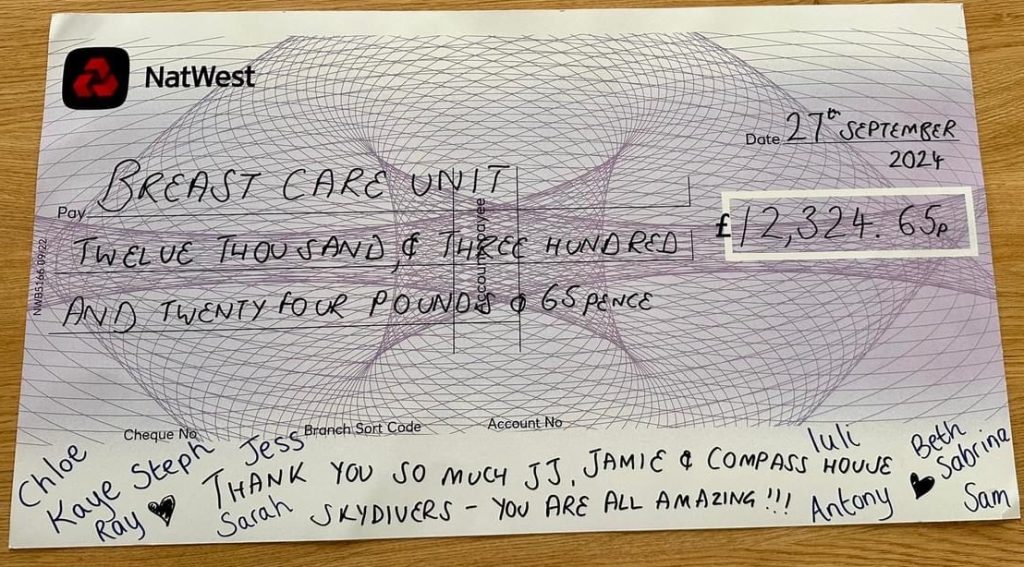 NatWest
Date 27th SEPTEMBER
2024
Pay BREAST CARE UNIT
£12,324.65p
TWELVE THOUSAND & THREE HUNDRED
AND TWENTY FOUR POUNDS & 65 PENCE
NWB5166 09/22
Cheque No
Branch Sort Code
Account No
Chloe
Kaye Steph Jess
Ray
Sarah
THANK YOU SO MUCH JJ, JAMIE & COMPASS HOUSE
SKYDIVERS - YOU ARE ALL AMAZING!!!
Iuli
Antony
Beth
Sabrina
Sam